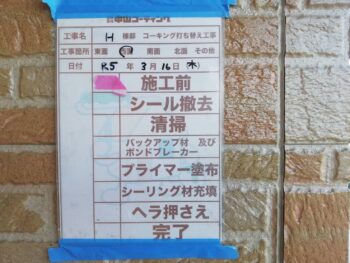 ㈱中山コーティング
工事名 H 様邸 コーキング打ち替え工事
工事箇所 東面 西面 南面 北面 その他
日付 R5 年 3 月 16 日 (木)
施工前
シール撤去
清掃
バックアップ材 及び
ボンドブレーカー
プライマー塗布
シーリング材充填
ヘラ押さえ
完了